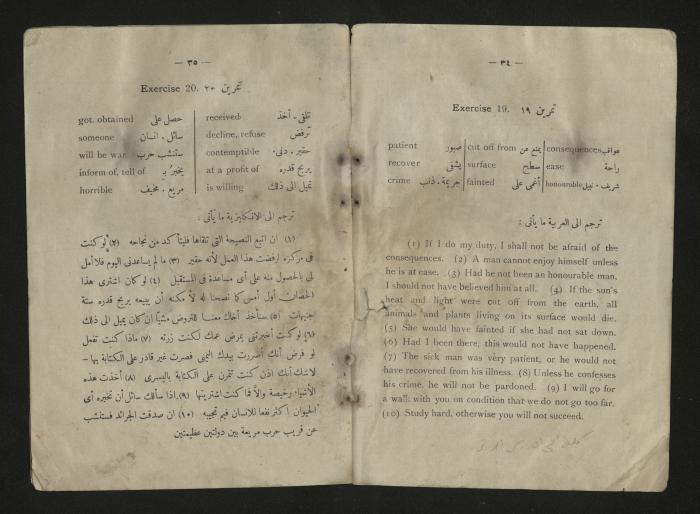 — ٣٤ —
Exercise 19. تمرين ١٩
patient صبور cut off from يمنع من consequences عواقب
recover يشفى surface سطح ease راحة
crime جريمة. ذنب fainted أغمى على honourable شريف. نبيل
ترجم الى العربية ما يأتى :
(1) If I do my duty, I shall not be afraid of the
consequences. (2) A man cannot enjoy himself unless
he is at ease. (3) Had he not been an honourable man,
I should not have believed him at all. (4) If the sun's
heat and light were cut off from the earth, all
animals and plants living on its surface would die.
(5) She would have fainted if she had not sat down.
(6) Had I been there, this would not have happened.
(7) The sick man was very patient, or he would not
have recovered from his illness. (8) Unless he confesses
his crime, he will not be pardoned. (9) I will go for
a walk with you on condition that we do not go too far.
(10) Study hard, otherwise you will not succeed.
— ٣٥ —
Exercise 20. تمرين ٢٠
got. obtained حصل على received تلقى. أخذ
someone سائل. انسان decline, refuse ترفض
will be war ستنشب حرب contemptible حقير. دنىء
inform of, tell of يخبر بـ at a profit of يربح قدره
horrible مريع. مخيف is willing تميل الى ذلك
ترجم الى الانكليزية ما يأتى :
(١) ان اتبع النصيحة التى تلقاها فليتأكد من نجاحه (٢) لو كنت
فى مركزه لرفضت هذا العمل لأنه حقير (٣) ما لم يساعدنى اليوم فلا أمل
لى بالحصول منه على أى مساعدة فى المستقبل (٤) لو كان اشترى هذا
الحصان أول أمس كما نصحنا له لأمكنه أن يبيعه بربح قدره ستة
جنيهات (٥) سنأخذ أخاك معنا للتروض مشيًا ان كان يميل الى ذلك
(٦) لو كنت أخبرتنى بمرض عمك لكنت زرته (٧) ماذا كنت تفعل
لو فرض أنك أضررت بيدك اليمنى فصرت غير قادر على الكتابة بها —
لاشك أنك اذن كنت تتمرن على الكتابة باليسرى (٨) أخذت هذه
الأشياء رخيصة والا فما كنت اشتريتها (٩) اذا سألك سائل أن تخبره أى
الحيوان أكثر نفعا للانسان فبم تجيبه (١٠) ان صدقت الجرائد فستنشب
عن قريب حرب مريعة بين دولتين عظيمتين